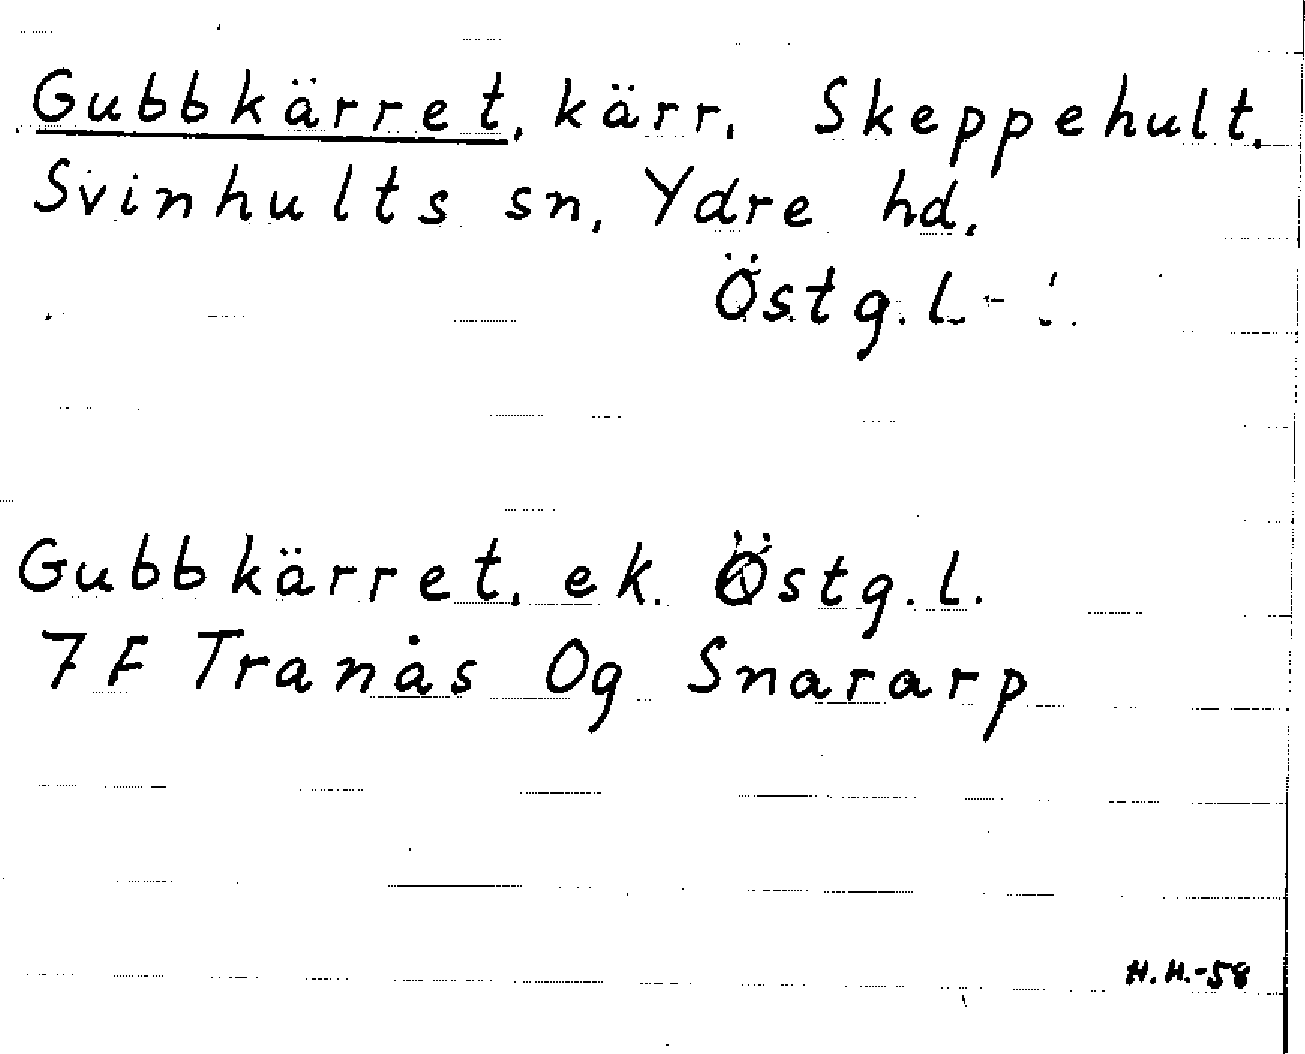 Gubbkärret, kärr, Skeppehult,
Svinhults sn, Ydre hd,
Östg.l.
Gubbkärret, ek. Östg.l.
7F Tranås Og Snararp
H.H.-58